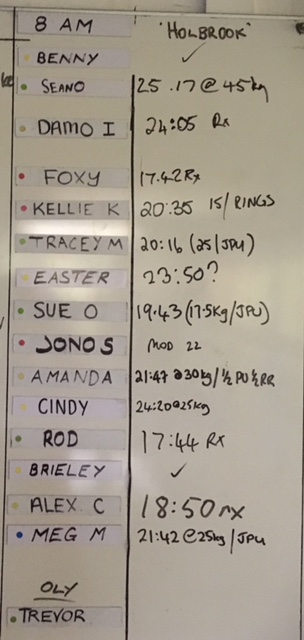 8 AM "HOLBROOK"
BENNY ✓
SEANO 25.17 @ 45kg
DAMO I 24:05 Rx
FOXY 17.42 Rx
KELLIE K 20:35 15/RINGS
TRACEY M 20:16 (25/JPU)
EASTER 23:50?
SUE O 19.43 (17.5kg/JPU)
JONO S MOD 22
AMANDA 21:47 @30kg/½ PU ½RR
CINDY 24:20@25kg
ROD 17:44 Rx
BRIELEY ✓
ALEX C 18:50 rx
MEG M 21:42 @25kg/JPU
OLY
TREVOR